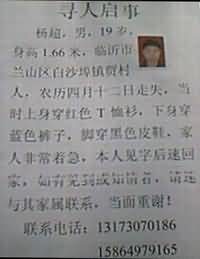 寻人启事
杨超，男，19岁，
身高1.66米，临沂市
兰山区白沙埠镇贾村
人，农历四月十二日走失，当
时上身穿红色T恤衫，下身穿
蓝色裤子，脚穿黑色皮鞋，家
人非常着急，本人见字后速回
家，如有见到或知情者，请速
与其家属联系，当面重谢！
联系电话：13173070186
15864979165